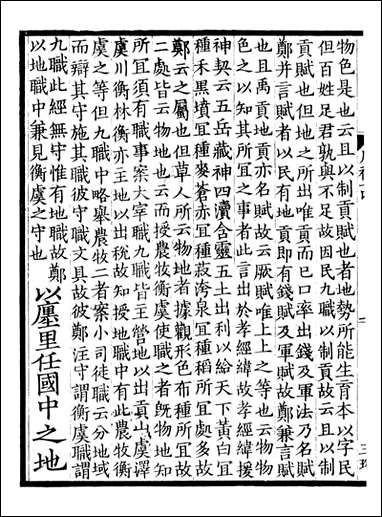 物色是也云且以制貢賦也者地勢所能生育本以字民
但百姓足君孰與不足故因民九職以制貢故云且以制
貢賦也但地之所出唯貢而已口率出錢及軍法乃名賦
鄭并言賦者以民有地貢即有錢賦及軍賦故鄭兼言賦
也且禹貢地貢亦名賦故云厥賦唯上上之等也云物物
色之以知其所宜之事者此言出於孝經緯故孝經緯援
神契云五岳藏神四瀆含靈五土出利以給天下黃白宜
種禾黑墳宜種麥蒼赤宜種菽洿泉宜種稻所宜處多故
鄭云之屬也但草人所云物地者據觀形色布種所宜故
二處皆云物地也云而授農牧衡虞使職之者既物地知
所宜須有職事案大宰職九職皆主營地以出貢山虞澤
虞川衡林衡亦主地以出稅故知授地職中有此農牧衡
虞之等但九職中略舉農牧二者案小司徒職云分地域
而辯其守施其職彼守職文具故彼鄭注守謂衡虞職謂
九職此經無守惟有地職故鄭
以地職中兼見衡虞之守也
以廛里任國中之地